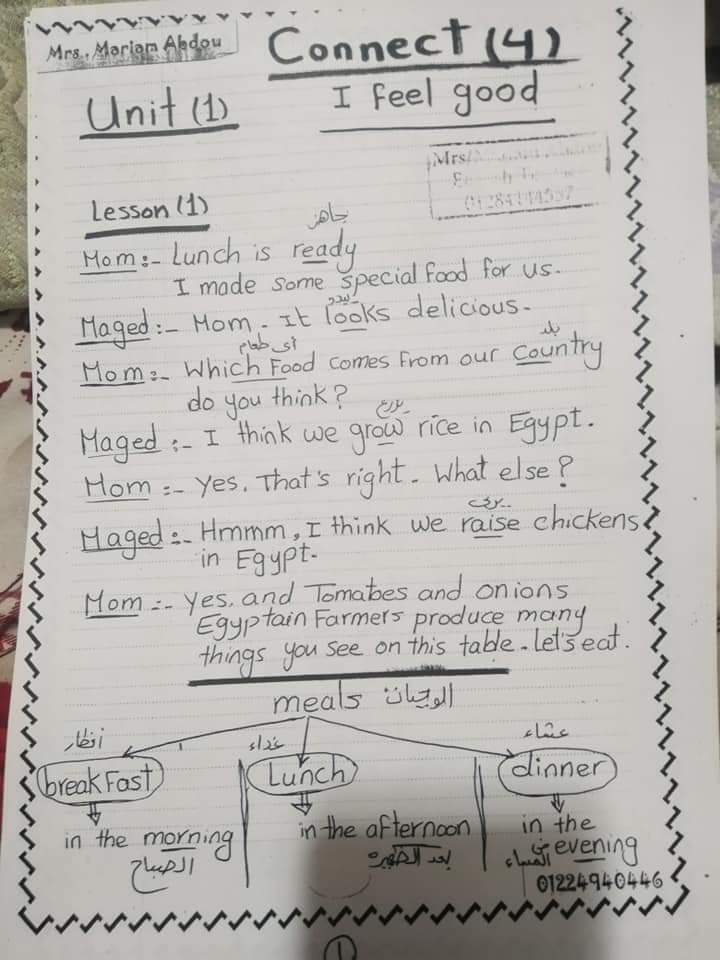 Mrs. Mariam Abdou
Connect (4)
Unit (1)
I feel good
Mrs/
Lesson (1)
جاهز
Mom :- Lunch is ready
I made some special food for us.
يبدو
Maged :- Mom. It looks delicious.
أى طعام
بلد
Mom :- Which Food comes from our country
do you think?
يزرع
Maged :- I think we grow rice in Egypt.
Mom :- Yes. That's right. What else?
يربى
Maged :- Hmmm, I think we raise chickens
in Egypt.
Mom :- Yes. and Tomatoes and onions
Egyptain Farmers produce many
things you see on this table. let's eat.
meals الوجبات
أفطار
غداء
عشاء
breakFast
Lunch
dinner
in the morning
الصباح
in the afternoon
بعد الظهيرة
in the
evening
المساء
01224940446
1